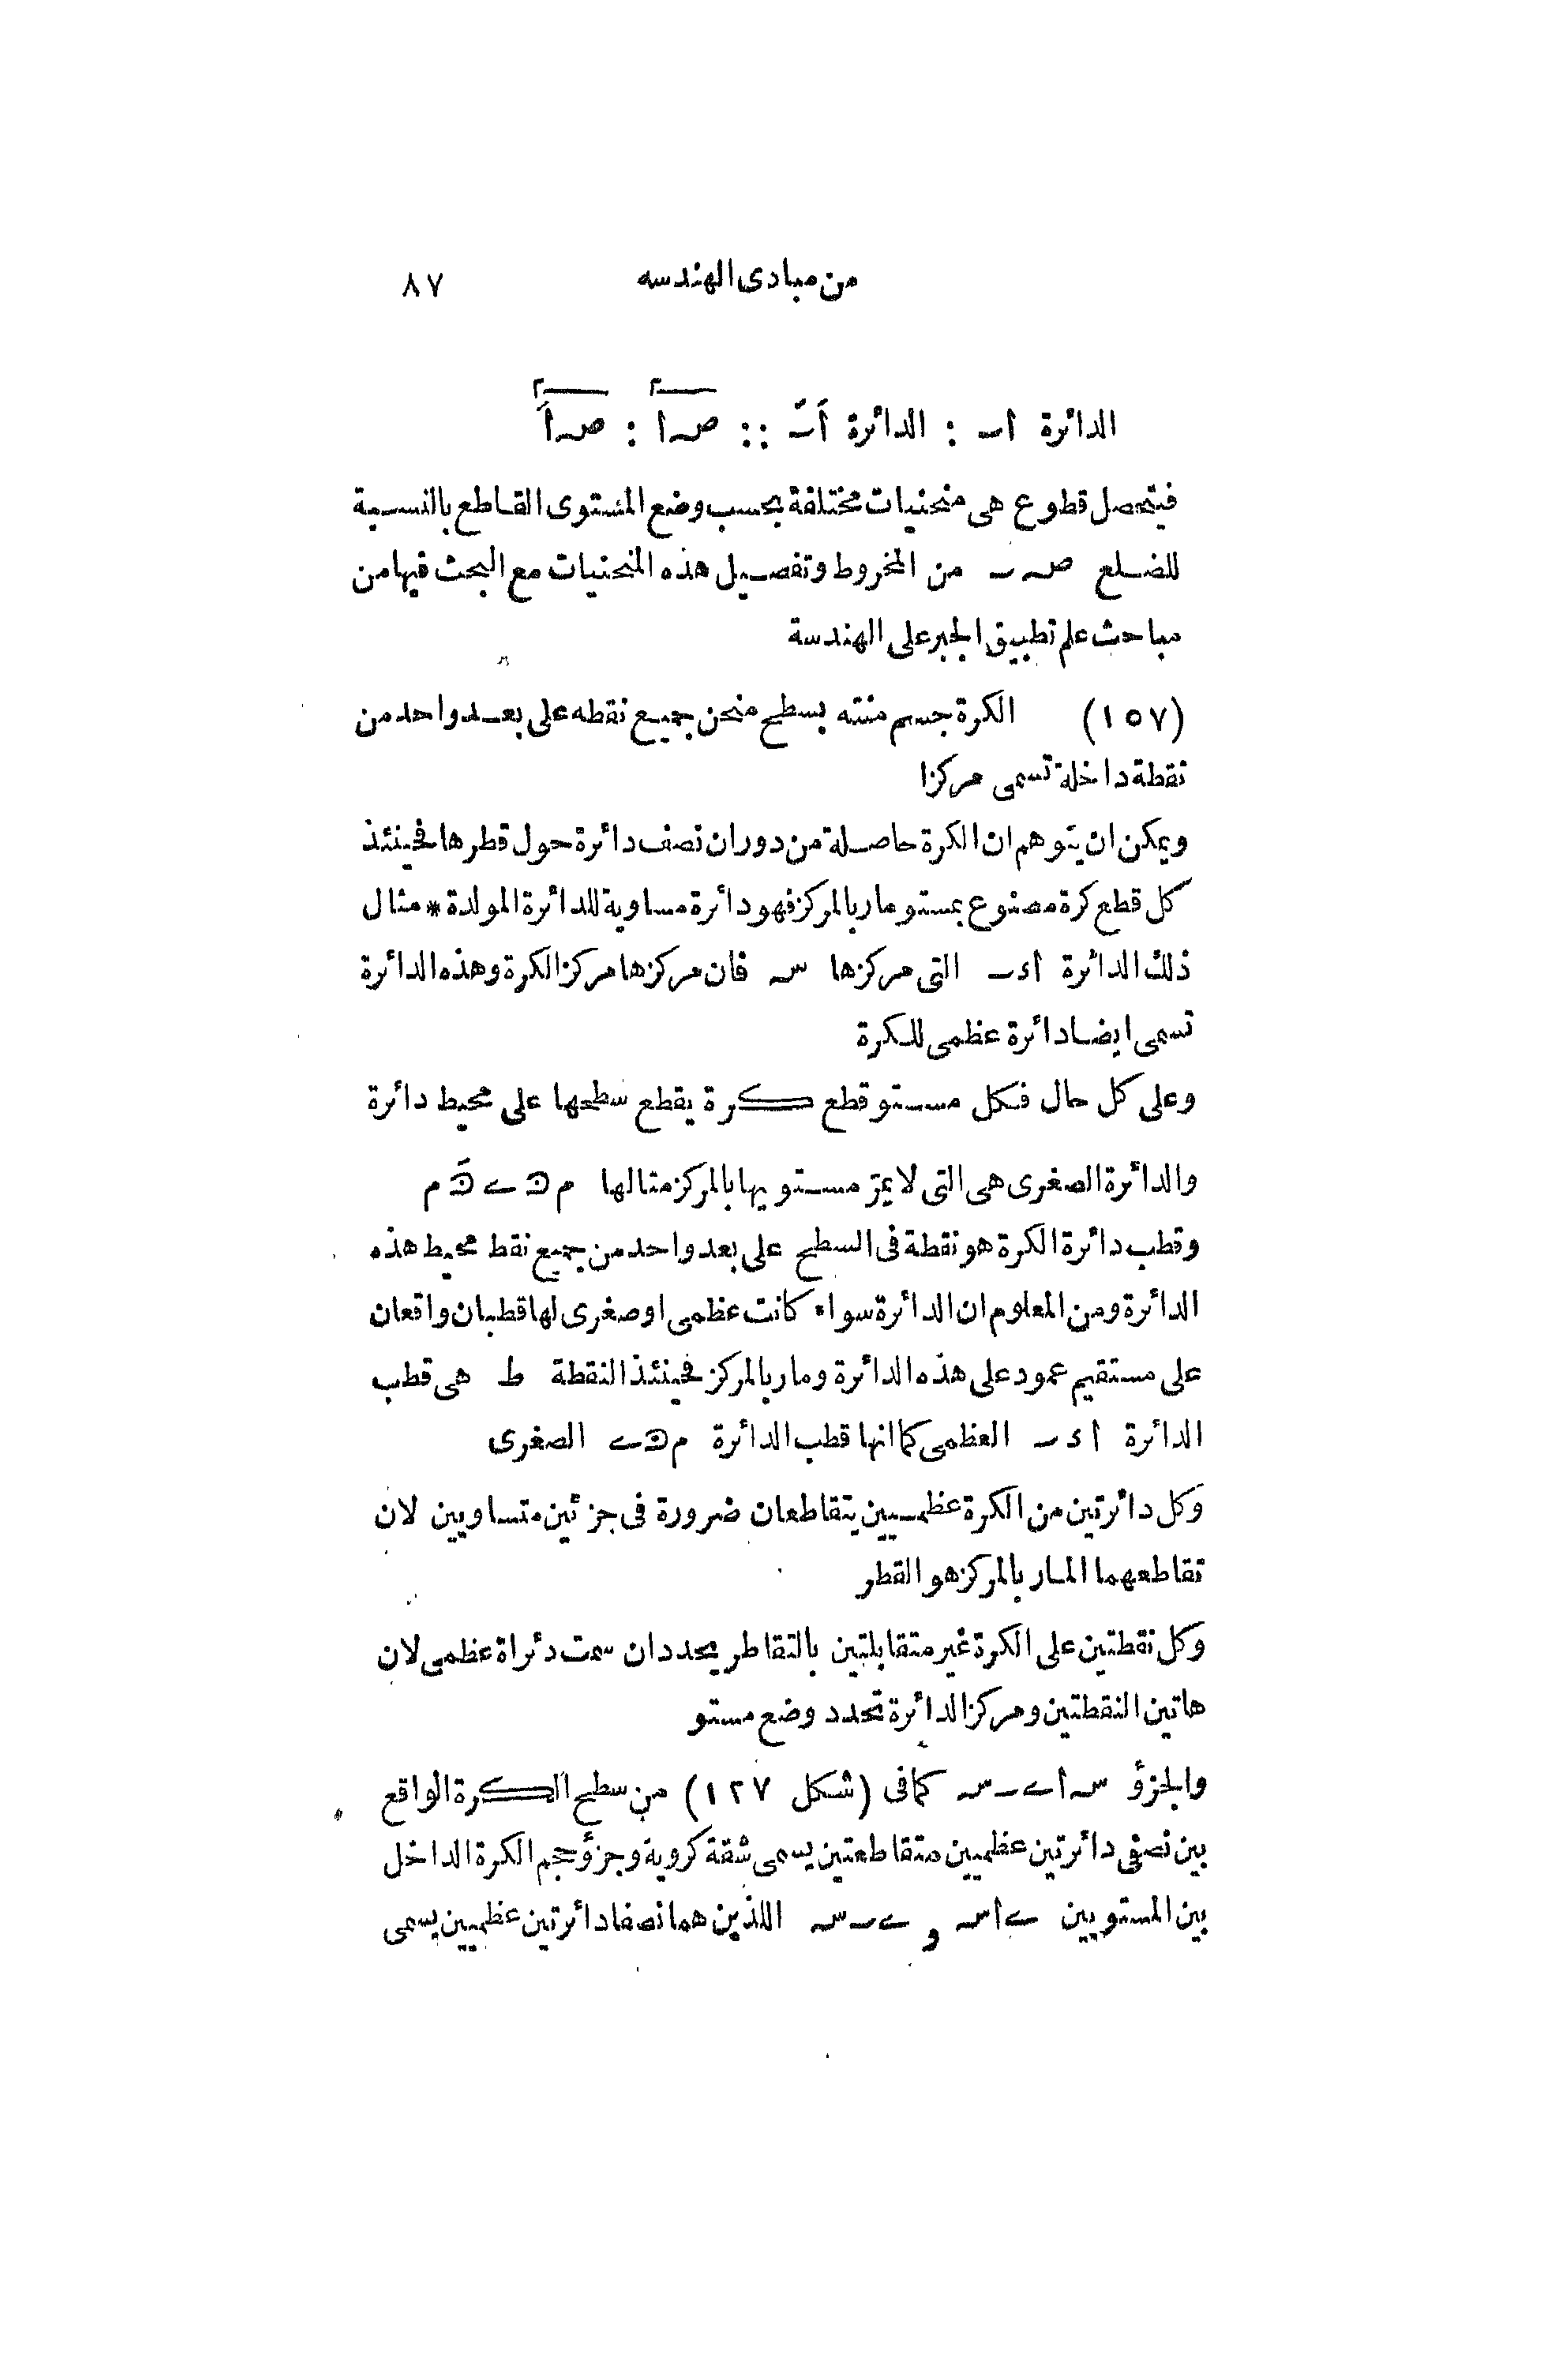 من مبادى الهندسه ٨٧
الدائرة اٮ : الدائرة اَٮَ :: صہا٢ : صہاَ٢
فيتحصل قطوع هى منحنيات مختلفة بحسب وضع المستوى القاطع بالنسبة
للضلع صہٮ من المخروط وتفصيل هذه المنحنيات مع البحث فيها من
مباحث علم تطبيق الجبر على الهندسة
(١٥٧) الكرة جسم منته بسطح منحن جميع نقطه على بعد واحد من
نقطة داخلة تسمى مركزا
ويمكن ان يتوهم ان الكرة حاصلة من دوران نصف دائرة حول قطرها فحينئذ
كل قطع كرة مصنوع بمستو مار بالمركز فهو دائرة مساوية للدائرة المولدة * مثال
ذلك الدائرة اءٮ التى مركزها سہ فان مركزها مركز الكرة وهذه الدائرة
تسمى ايضا دائرة عظمى للكرة
وعلى كل حال فكل مستو قطع كرة يقطع سطحها على محيط دائرة
والدائرة الصغرى هى التى لا يمرّ مستويها بالمركز مثالها م
وقطب دائرة الكرة هو نقطة فى السطح على بعد واحد من جميع نقط محيط هذه
الدائرة ومن المعلوم ان الدائرة سواء كانت عظمى او صغرى لها قطبان واقعان
على مستقيم عمود على هذه الدائرة ومار بالمركز فحينئذ النقطة ط هى قطب
الدائرة اءٮ العظمى كما انها قطب الدائرة الصغرى
وكل دائرتين من الكرة عظميين يتقاطعان ضرورة فى جزئين متساويين لان
تقاطعهما المار بالمركز هو القطر
وكل نقطتين على الكرة غير متقابلتين بالتقاطر يحددان سمت دئراة عظمى لان
هاتين النقطتين ومركز الدائرة تحدد وضع مستو
والجزؤ سہاےٮسہ كما فى (شكل ١٢٧) من سطح الكرة الواقع
بين نصفى دائرتين عظميين متقاطعتين يسمى شقة كروية وجزؤ حجم الكرة الداخل
بين المستويين ےاسہ و ےٮسہ اللذين هما نصفا دائرتين عظميين يسمى